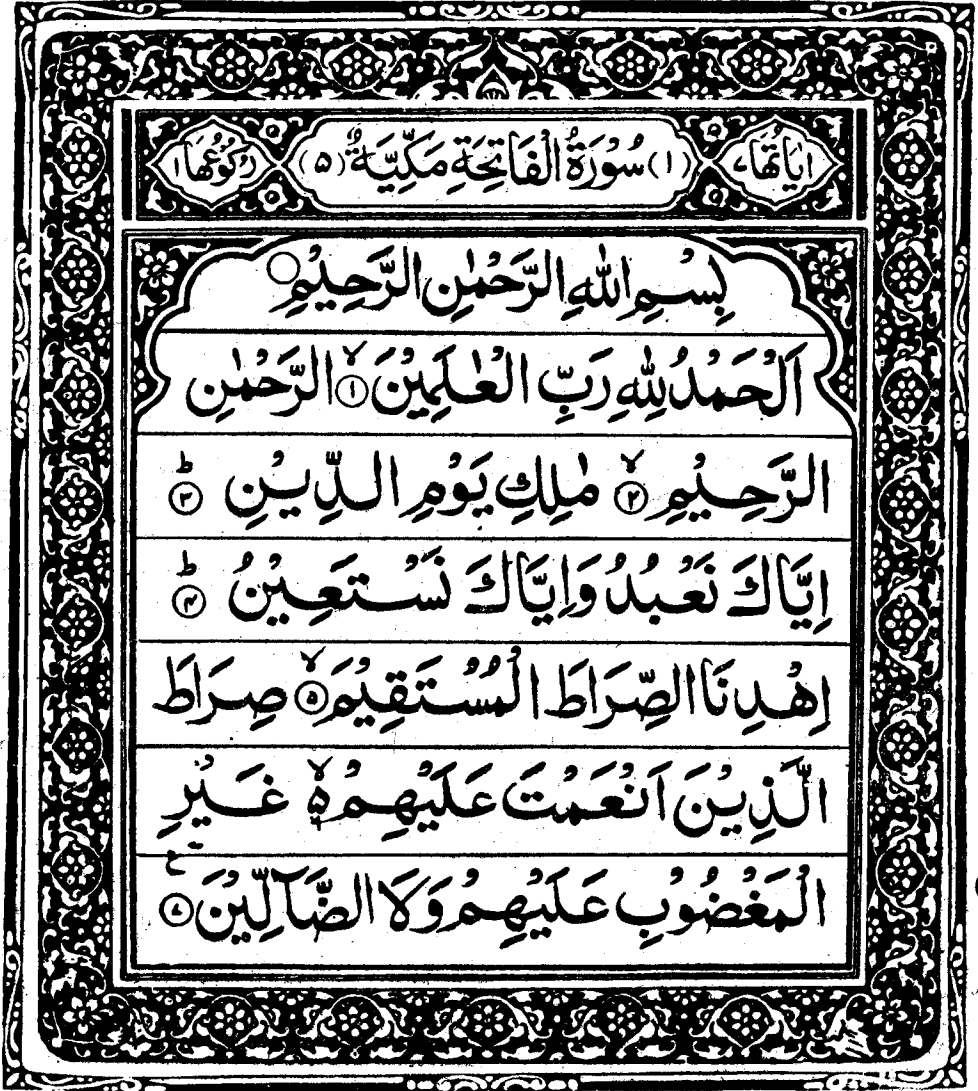 اٰيَاتُهَا ٧ (١) سُوْرَةُ الْفَاتِحَةِ مَكِّيَّةٌ (٥) رُكُوْعُهَا ١
بِسْمِ اللهِ الرَّحْمٰنِ الرَّحِيْمِ
اَلْحَمْدُ لِلهِ رَبِّ الْعٰلَمِيْنَ ۙ ١ الرَّحْمٰنِ
الرَّحِيْمِ ۙ ٢ مٰلِكِ يَوْمِ الدِّيْنِ ؕ ٣
اِيَّاكَ نَعْبُدُ وَاِيَّاكَ نَسْتَعِيْنُ ؕ ٤
اِهْدِنَا الصِّرَاطَ الْمُسْتَقِيْمَ ۙ ٥ صِرَاطَ
الَّذِيْنَ اَنْعَمْتَ عَلَيْهِمْ ۙ۵ ٦ غَيْرِ
الْمَغْضُوْبِ عَلَيْهِمْ وَلَا الضَّآلِّيْنَ ٧ ع